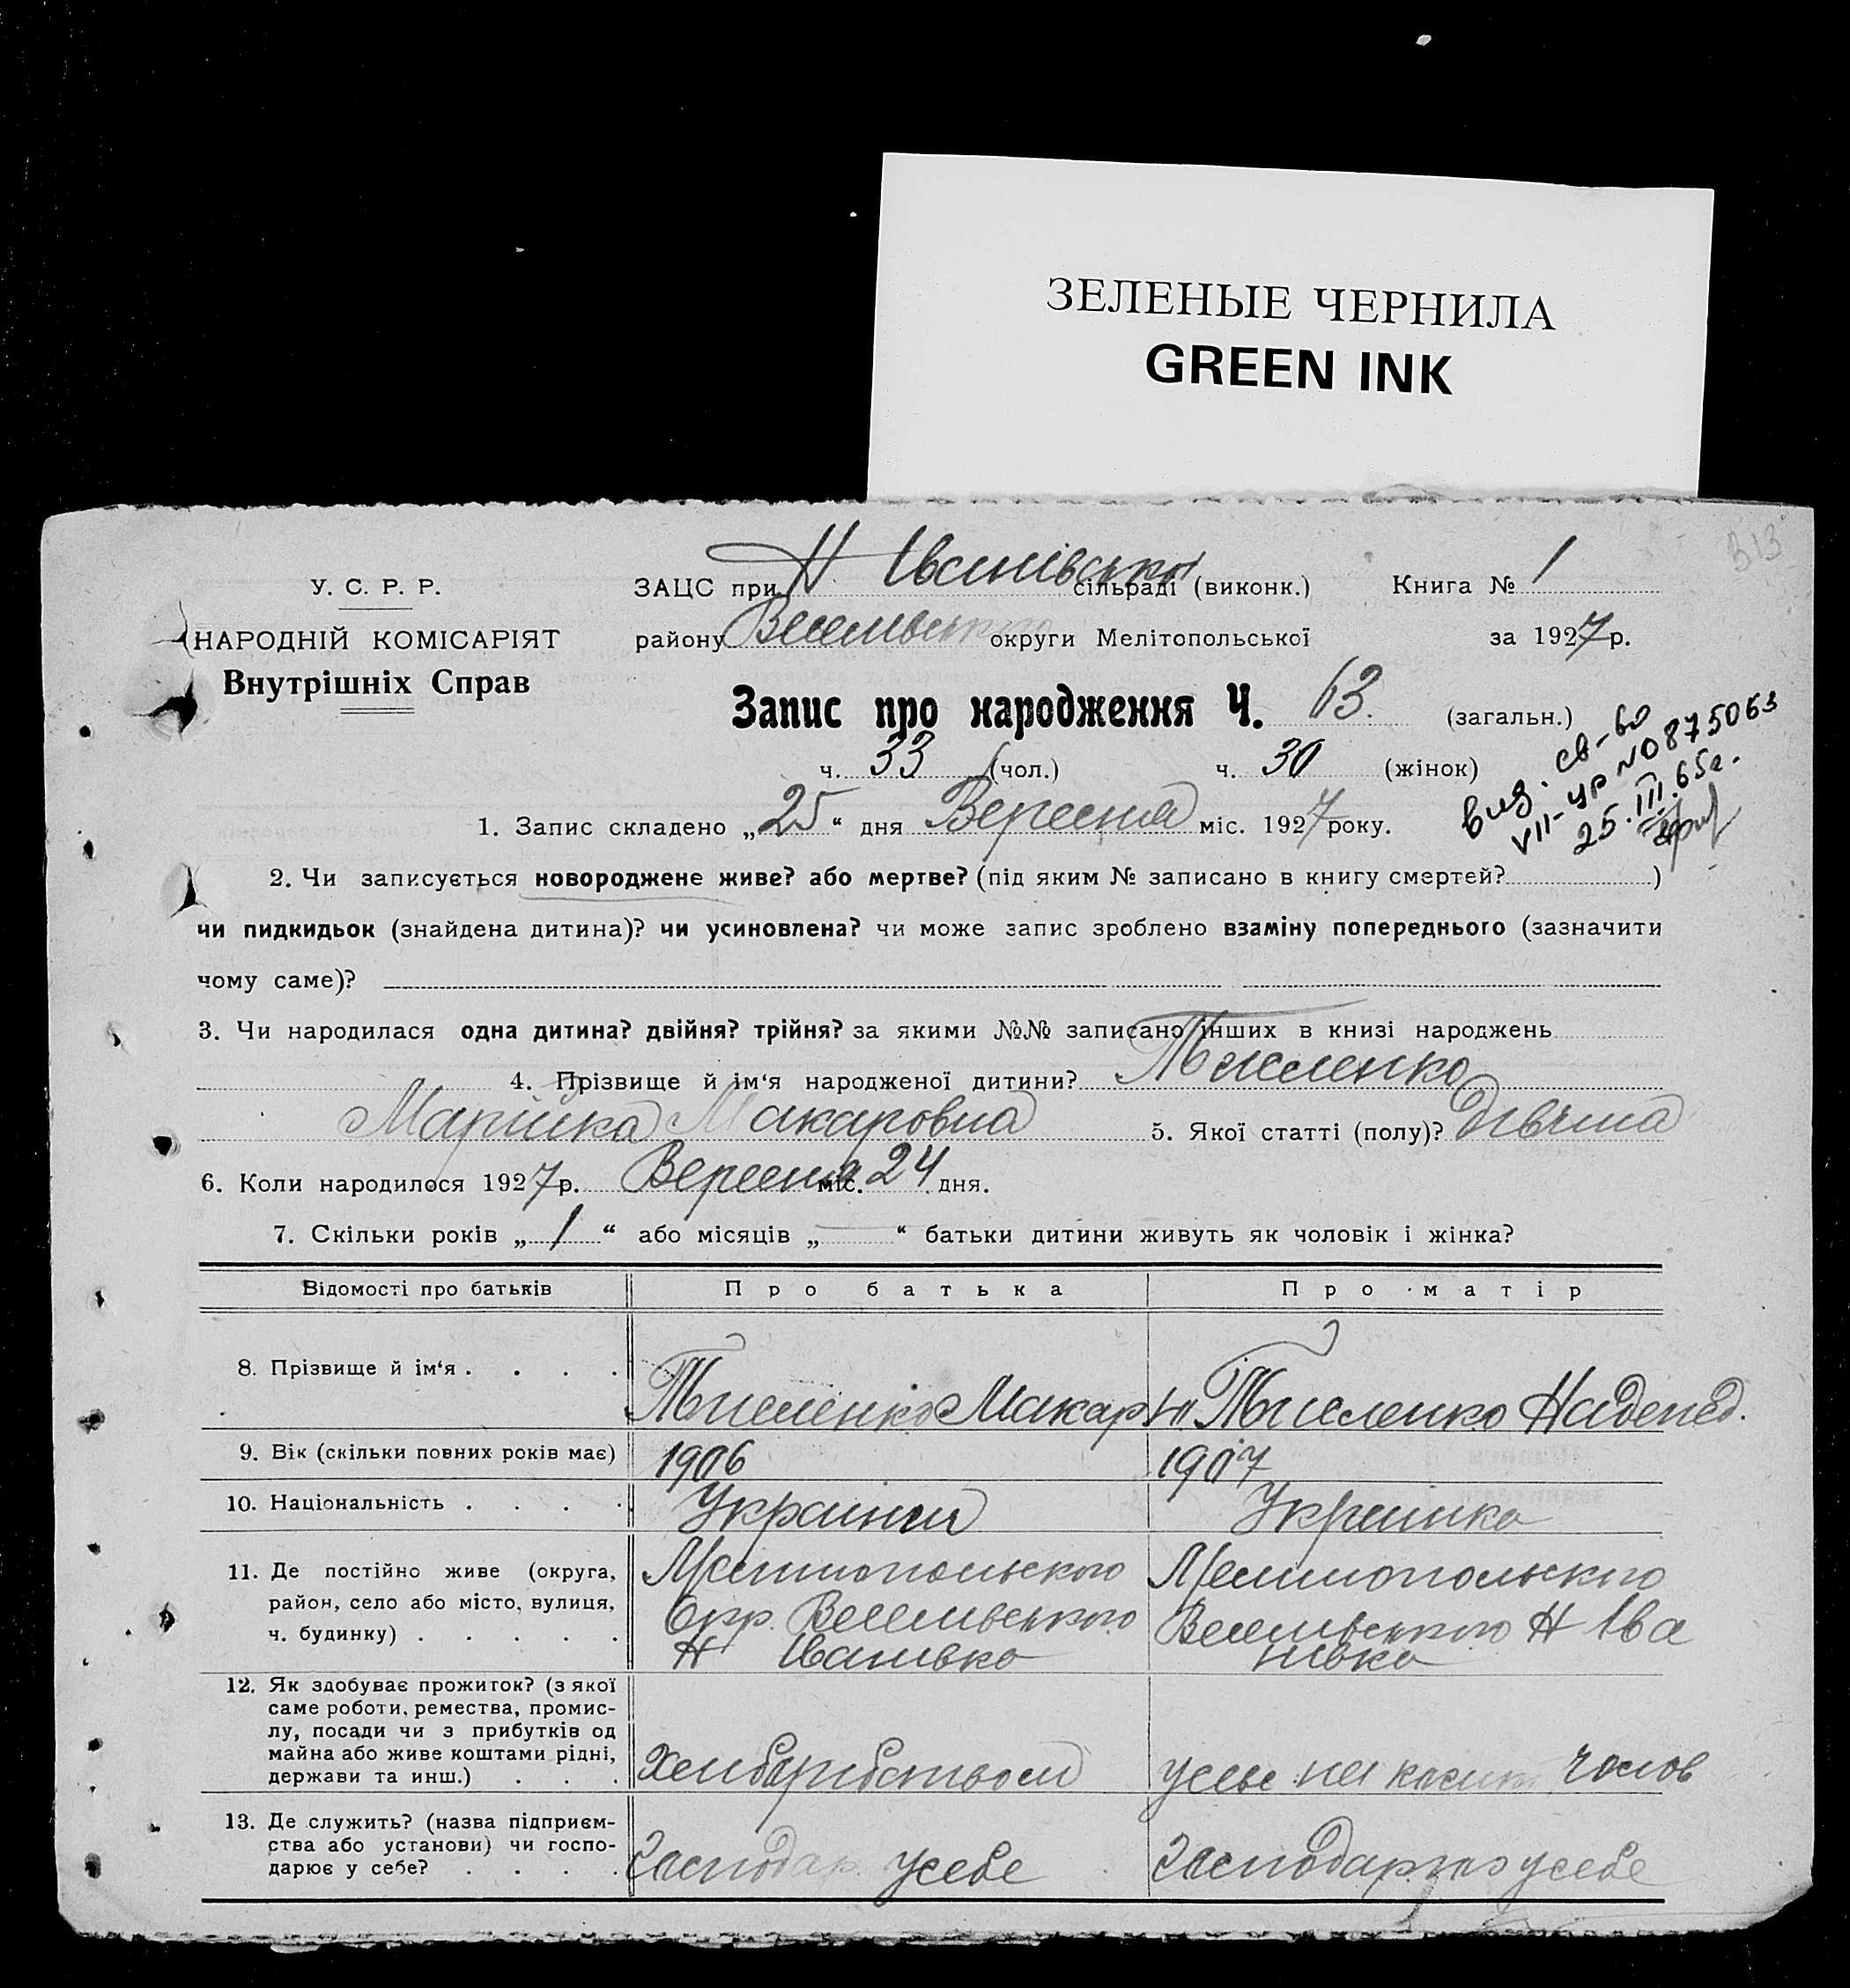 ЗЕЛЕНЫЕ ЧЕРНИЛА
GREEN INK
В13
У. С. Р. Р.
НАРОДНІЙ КОМІСАРІЯТ
Внутрішніх Справ
ЗАЦС при Н. Іванівські сільраді (виконк.) Книга № 1
району Веселівського округи Мелітопольської за 1927 р.
Запис про народження Ч. 63. (загальн.)
ч. 33 (чол.) ч. 30 (жінок)
вид. св-во
VII-УР №0875063
25.III.65г.
1. Запис складено „25“ дня Вересня міс. 1927 року.
2. Чи записується новороджене живе? або мертве? (під яким № записано в книгу смертей? )
чи пидкидьок (знайдена дитина)? чи усиновлена? чи може запис зроблено взаміну попереднього (зазначити
чому саме)?
3. Чи народилася одна дитина? двійня? трійня? за якими №№ записано інших в книзі народжень
4. Прізвище й ім‘я народженої дитини?
Марійка Макаровна 5. Якої статті (полу)? Дівчина
6. Коли народилося 1927 р. Вересня міс. 24 дня.
7. Скільки років „1“ або місяців „—“ батьки дитини живуть як чоловік і жінка?
Відомості про батьків Про батька Про матір
8. Прізвище й ім‘я . . . . Макар
9. Вік (скільки повних років має) 1906 1907
10. Національність . . . . Українец Українка
11. Де постійно живе (округа, район, село або місто, вулиця, ч. будинку) . . . . .
Мелитопольского Мелитопольского
Окр. Веселівського Веселівського Н Іва
Н Іванівка нівка
12. Як здобуває прожиток? (з якої саме роботи, ремества, промислу, посади чи з прибутків од майна або живе коштами рідні, держави та инш.) . . .
Хлиборобством на кошт чолов
13. Де служить? (назва підприємства або установи) чи господарює у себе? . . . .
Господар. усебе Господарює усебе